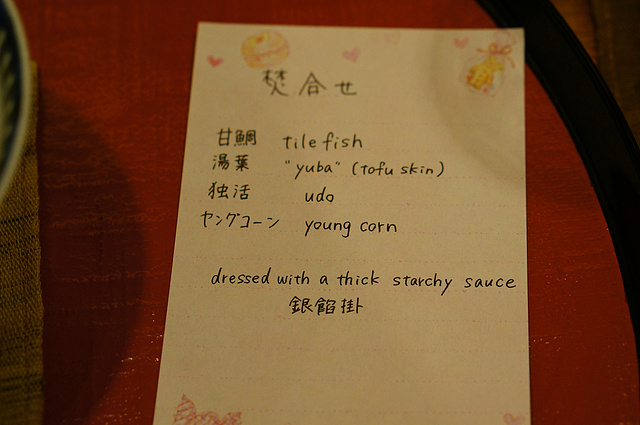 焚合せ
甘鯛 tile fish
湯葉 "yuba" (tofu skin)
独活 udo
ヤングコーン young corn
dressed with a thick starchy sauce
銀餡掛